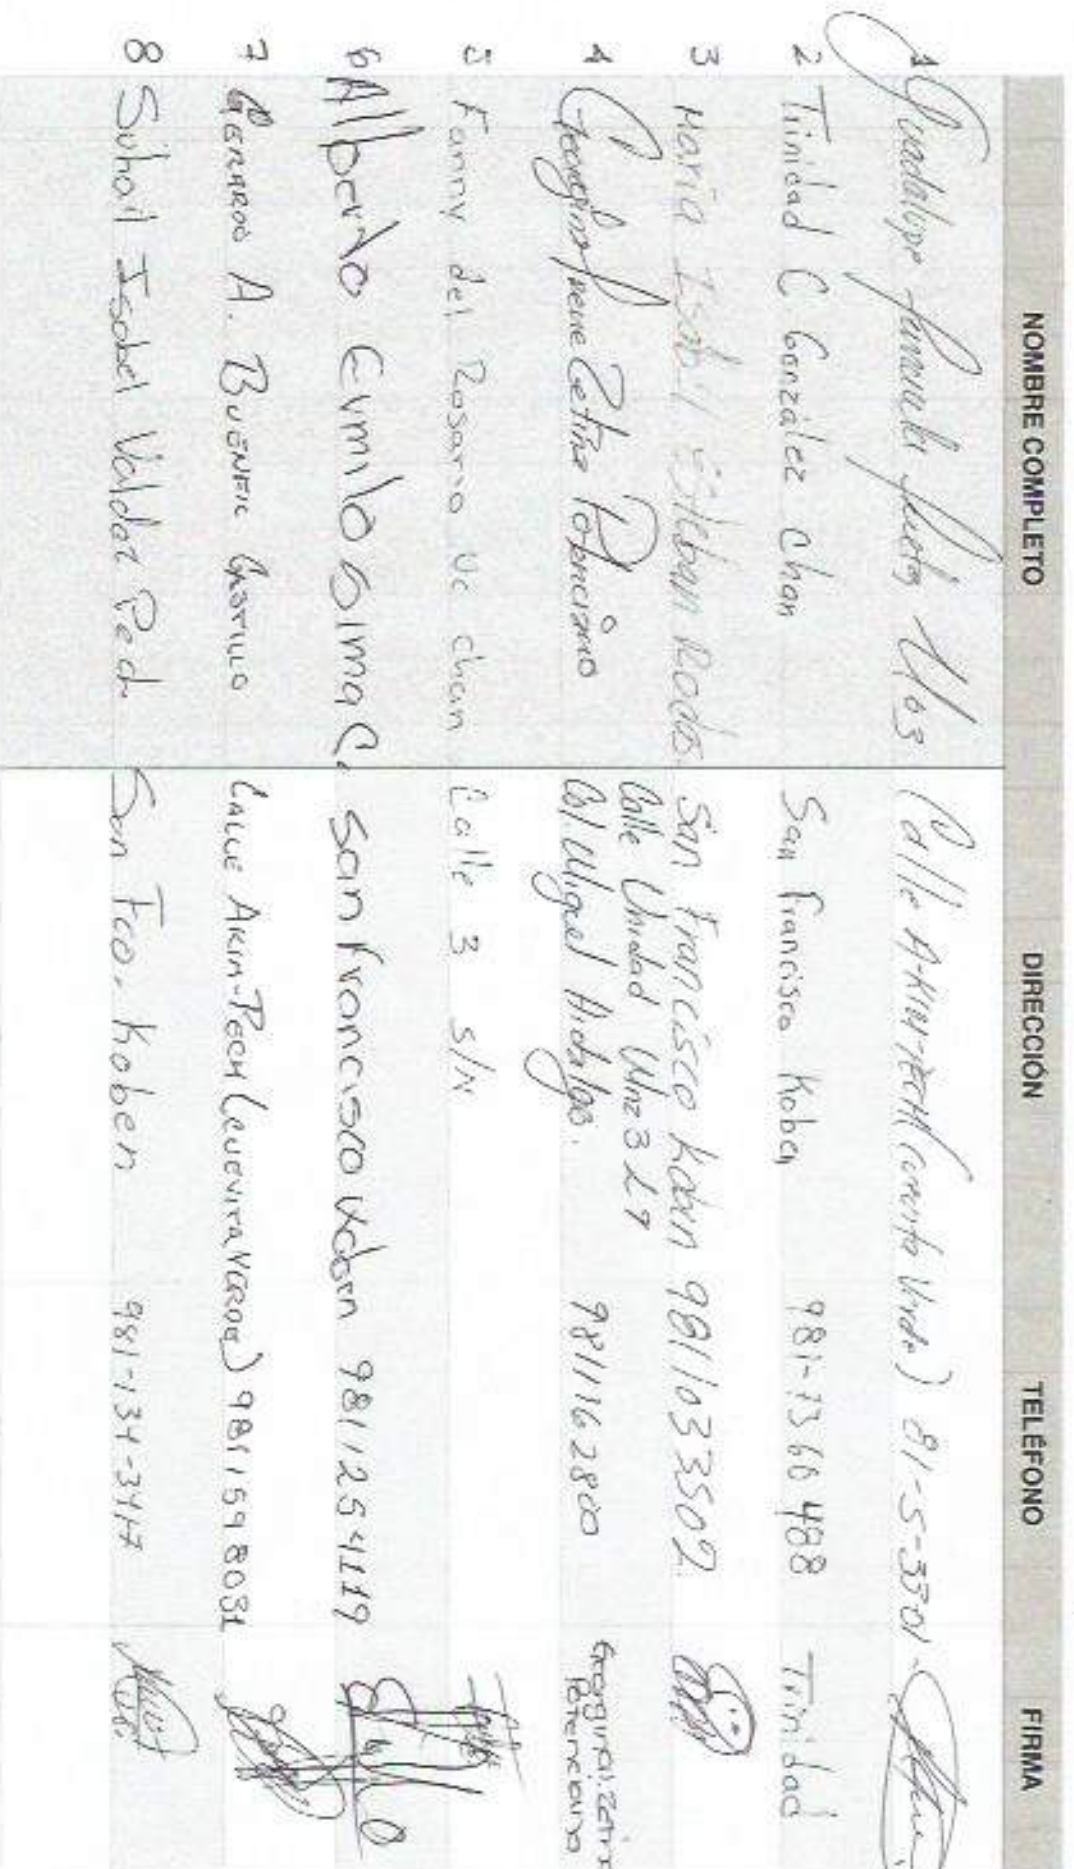 NOMBRE COMPLETO DIRECCIÓN TELÉFONO FIRMA
1 Guadalupe Uc Calle A-KIM-PECH (cuevita Verde) 81-5-3301
2 Trinidad C González Chan San Francisco Koben 981-1366488 Trinidad
3 María Isabel Esteban Rodas. San Francisco Koben 9811033502
4 Georgina Irene Zetina Potenciano Calle Unidad Mnz 3 L 9
Col. Miguel Hidalgo. 9811162800 Georgina I. Zetina
Potenciano
5 Fanny del Rosario Uc Chan Calle 3 S/N
6 Alberto Osima C. San Francisco Koben 9811254119
7 GERARDO A. BUENFIL CASTILLO CALLE AKIM-PECH (CUEVITA VERDE) 9811598031
8 Suhail Isabel Valdez Pech San Fco. Koben 981-134-3417